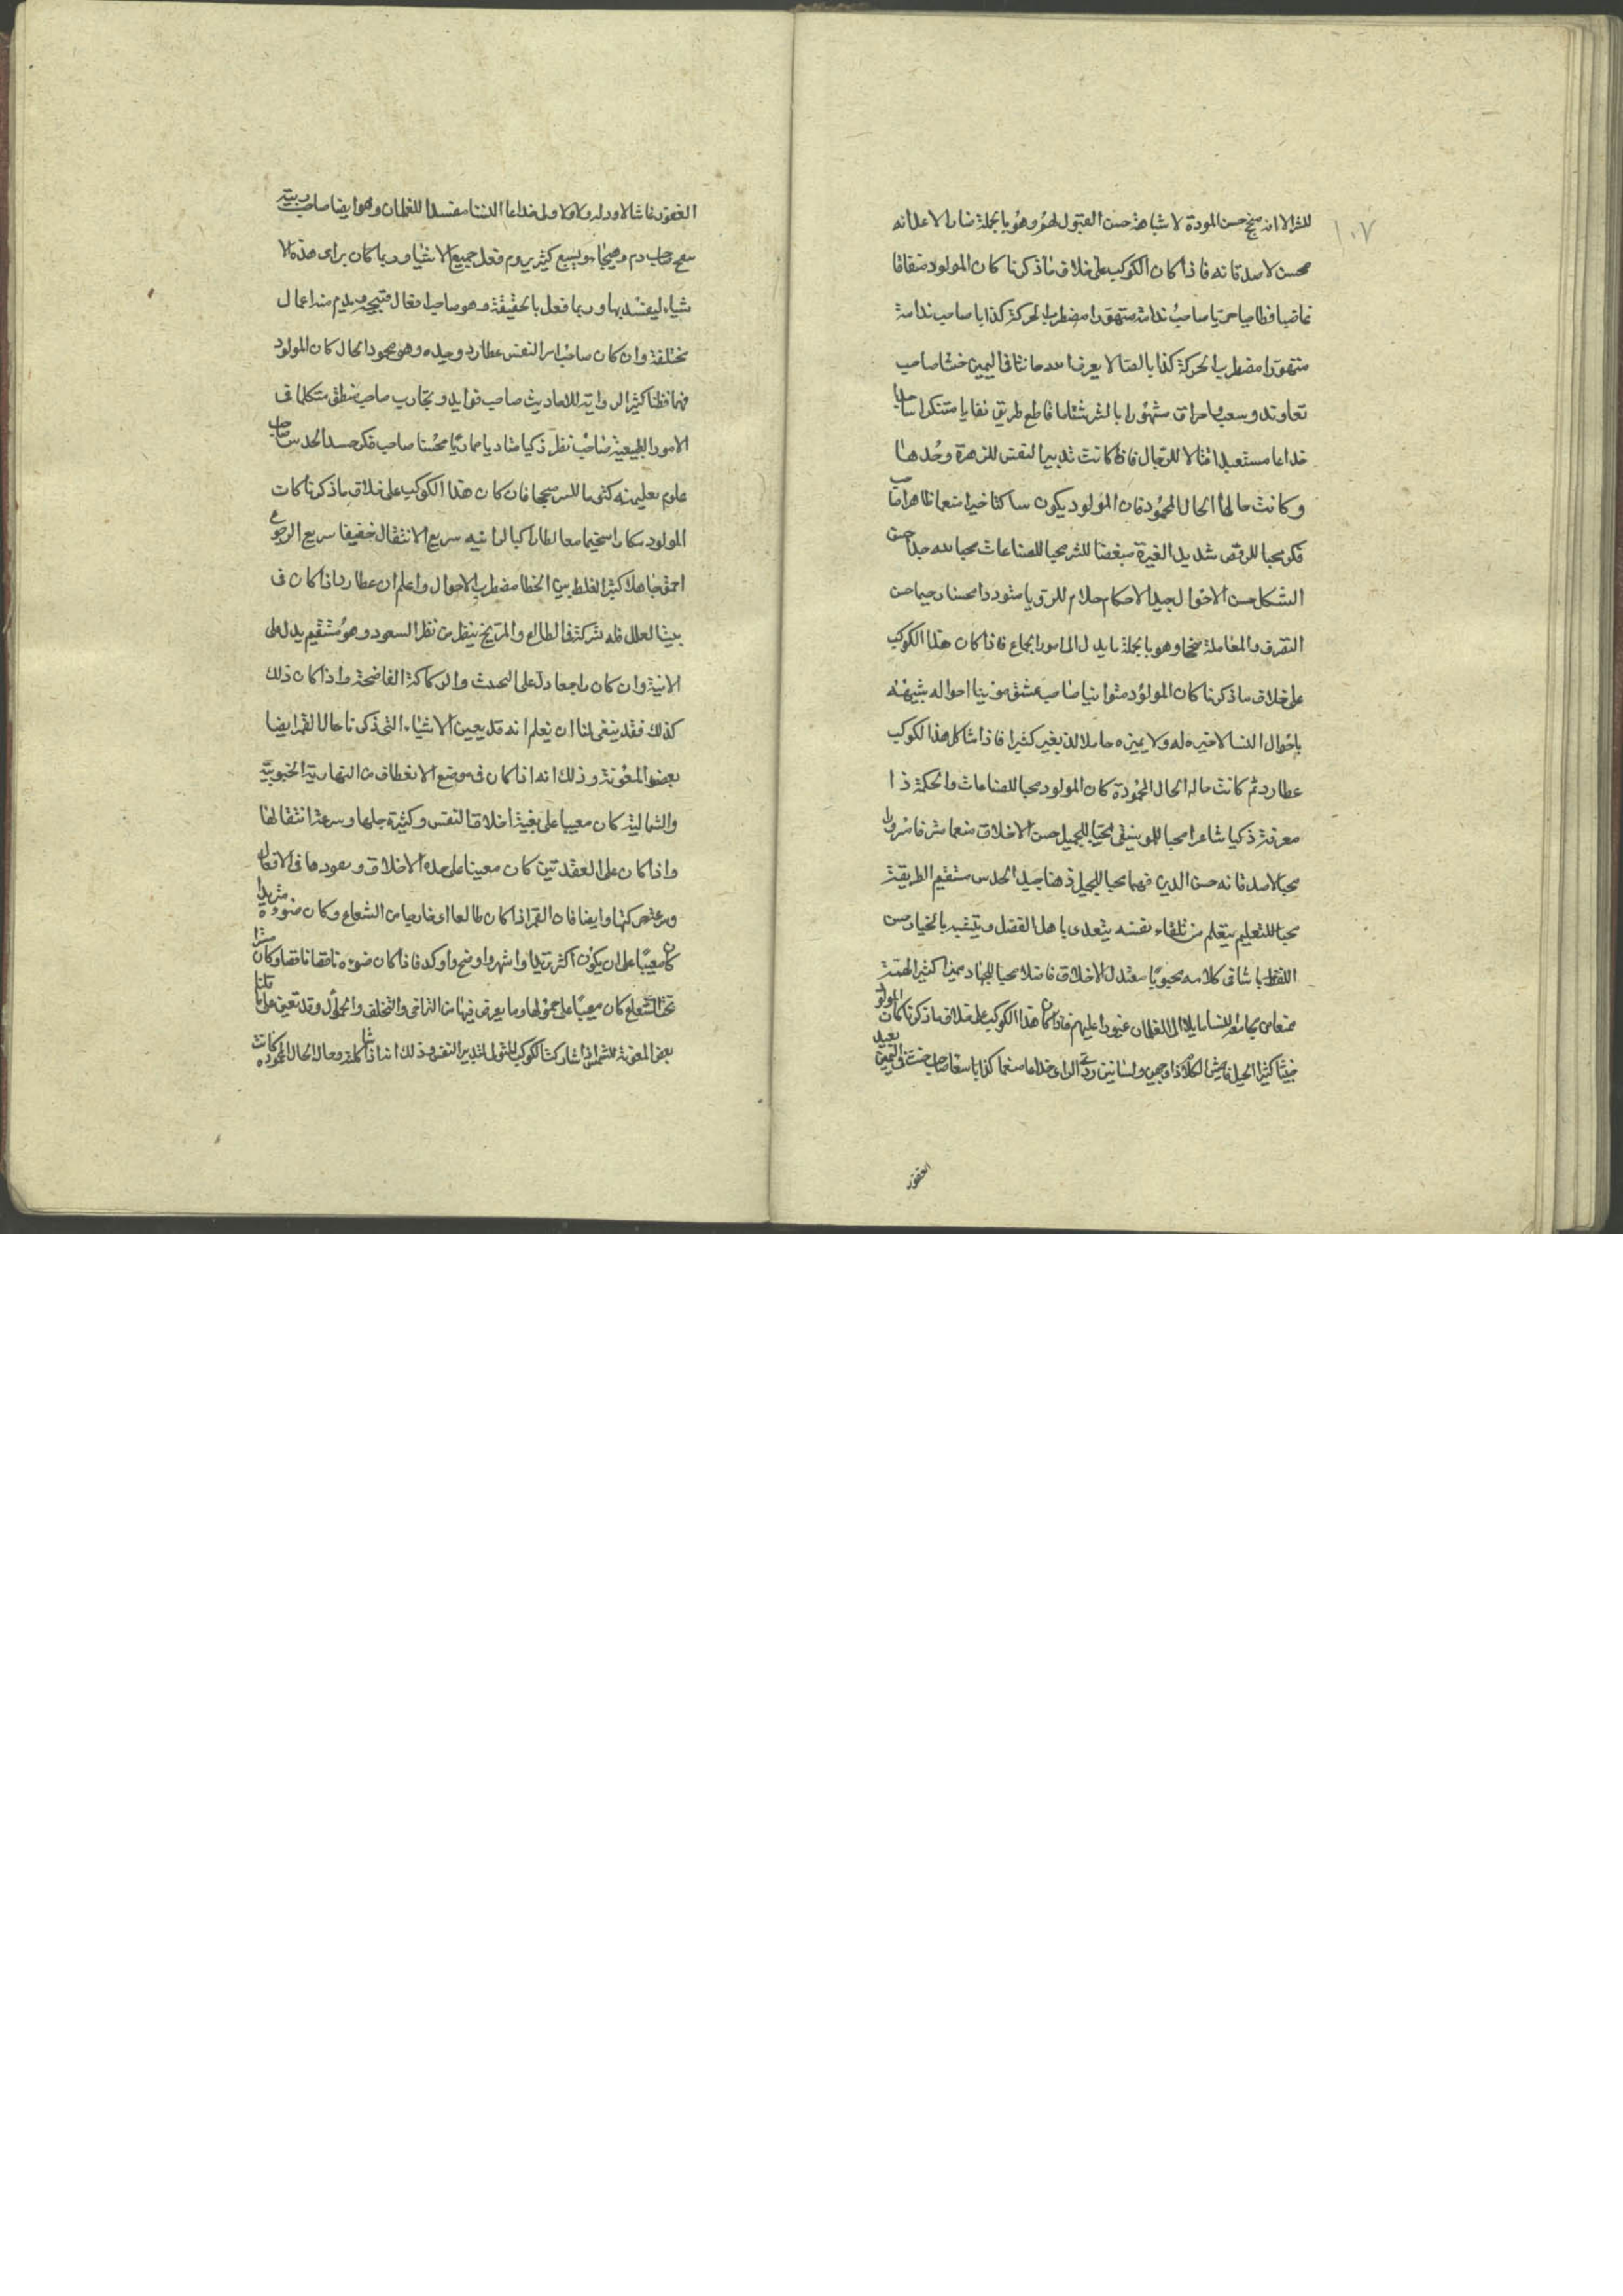 ١٠٧
للشر الا انه سخ حسن المودة لاشباهه حسن القبول لهم وهو بالجملة ضار لاعدائه
محسن لاصدقائه فاذا كان الكوكب على خلاف ما ذكرنا كان المولود منافقا
غاضبا فظا صاحب ندامة متهورا مضطرب الحركة كذابا صاحب ندامة
متهورا مضطرب الحركة كذابا لصا لا يعرف الله حانثا في اليمين خبثا صاحب
مشهورا بالشر شتاما قاطع طريق
خداعا مستعبدا قتالا للرجال فاذا كانت تدبير النفس للزهرة وحدها
وكانت حالها الحال المحمود فان المولود يكون ساكنا خيرا منعما ظاهرا صاحب
فكر محبا للرقص شديد الغيرة مبغضا للشر محبا للصناعات محبا لله جدا حسن
الشكل حسن الاحوال جيد الاحكام حلام للرؤيا متوددا محسنا رحيما حسن
التصرف والمعاملة سخيا وهو بالجملة ما يدل الى امور الجماع فاذا كان هذا الكوكب
على خلاف ما ذكرنا كان المولود متوانيا صاحب عشق مونثا احواله شبيهة
باحوال النسا لا خير له ولا يميزه حاملا لذ بغير كثير فاذا شاكل هذا الكوكب
عطارد ثم كانت حاله الحال المحمودة كان المولود محبا للصناعات والحكمة ذا
معرفة ذكيا شاعرا محبا للموسيقى محبا للجميل حسن الاخلاق منعما مترفا مسرورا
محبا لاصدقائه حسن الدين فهما محبا للجميل ذهنا جيد الحدس مستقيم الطريقة
محبا للتعليم يتعلم من تلقاء نفسه يتعدى باهل الفضل ويتشبه بالخيار حسن
اللفظ باشا في كلامه محبوبا معتدل الاخلاق فاضلا محبا للجهاد مميزا كثير الهمة
ممتعا من مجامعة للنسا مايلا الى الغلمان غيورا عليهم فاذا كان هذا الكوكب على خلاف ما ذكرنا كان المولود
خبيثا كثير الحيل فاحش الكلام ذا وجهين ولسانين ردئ الراى خداعا كذابا صاحب حنث في اليمين بعيد
الغفور
الغفور غاشا خداعا النسا مفسدا للغلمان وهو ايضا صاحب زينة
صاحب دم ويسمع كثير يروم فعل جميع الاشيا وربما كان يراى هذه الا
شياء ليفسد بها وربما فعل بالحقيقة وهو صاحب افعال قبيحة ويلزم منه اعمال
مختلفة وان كان صاحب امر النفس عطارد وحيده وهو محمود الحال كان المولود
فهما فطنا كثير الرواية للاحاديث صاحب فوايد وتجارب صاحب منطق متكلما في
الامور الطبيعية صاحب نظر ذكيا محسنا صاحب فكر الحدس صاحب
علوم تعليمية فان كان هذا الكوكب على خلاف ما ذكرنا كان
المولود سريع الانتقال خفيفا سريع الرجوع
احمق جاهلا كثير الغلط بين الخطا مضطرب الاحوال واعلم ان عطارد اذا كان في
بيت العلل فله شركة في الطالع والمريخ ينظر من نظر السعود وهو مستقيم يدل على
الانية وان كان راجعا دل على التحدث والركاكة الفاضحة واذا كان ذلك
كذلك فقد ينبغى لنا ان نعلم انه قد يعين الاشياء التى ذكرنا حال القمر ايضا
بعض المعونة وذلك انه اذا كان في موضع الانعطاف من النهاية الجنوبية
والشمالية كان معينا على تغير اخلاق النفس وكثرة حيلها وسرعة انتقالها
واذا كان على العقدتين كان معينا على حده الاخلاق وصعودها في الافعال
وسرعة حركتها وايضا فان القمر اذا كان طالعا اى خارجا من الشعاع وكان ضوءه متزيدا
كان معينا على ان يكون اكثر تزيدا واشهر واوضح واوكد فاذا كان ضوءه ناقصا وكان مستترا
تحت الشعاع كان معينا على حمولها وما يعرض فيها من التراخى والتخلف والخمول وقد تعين على ما قلنا
بعض المعونة الشمس اذا شاركت الكوكب المتولى لتدبير النفس وذلك انه اذا شاكلته وحاله الحال المحموده كانت